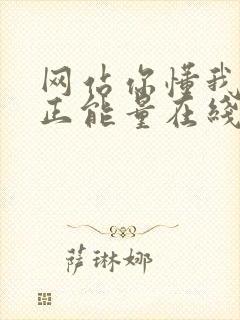 网站你懂我
正能量在线
萨琳娜